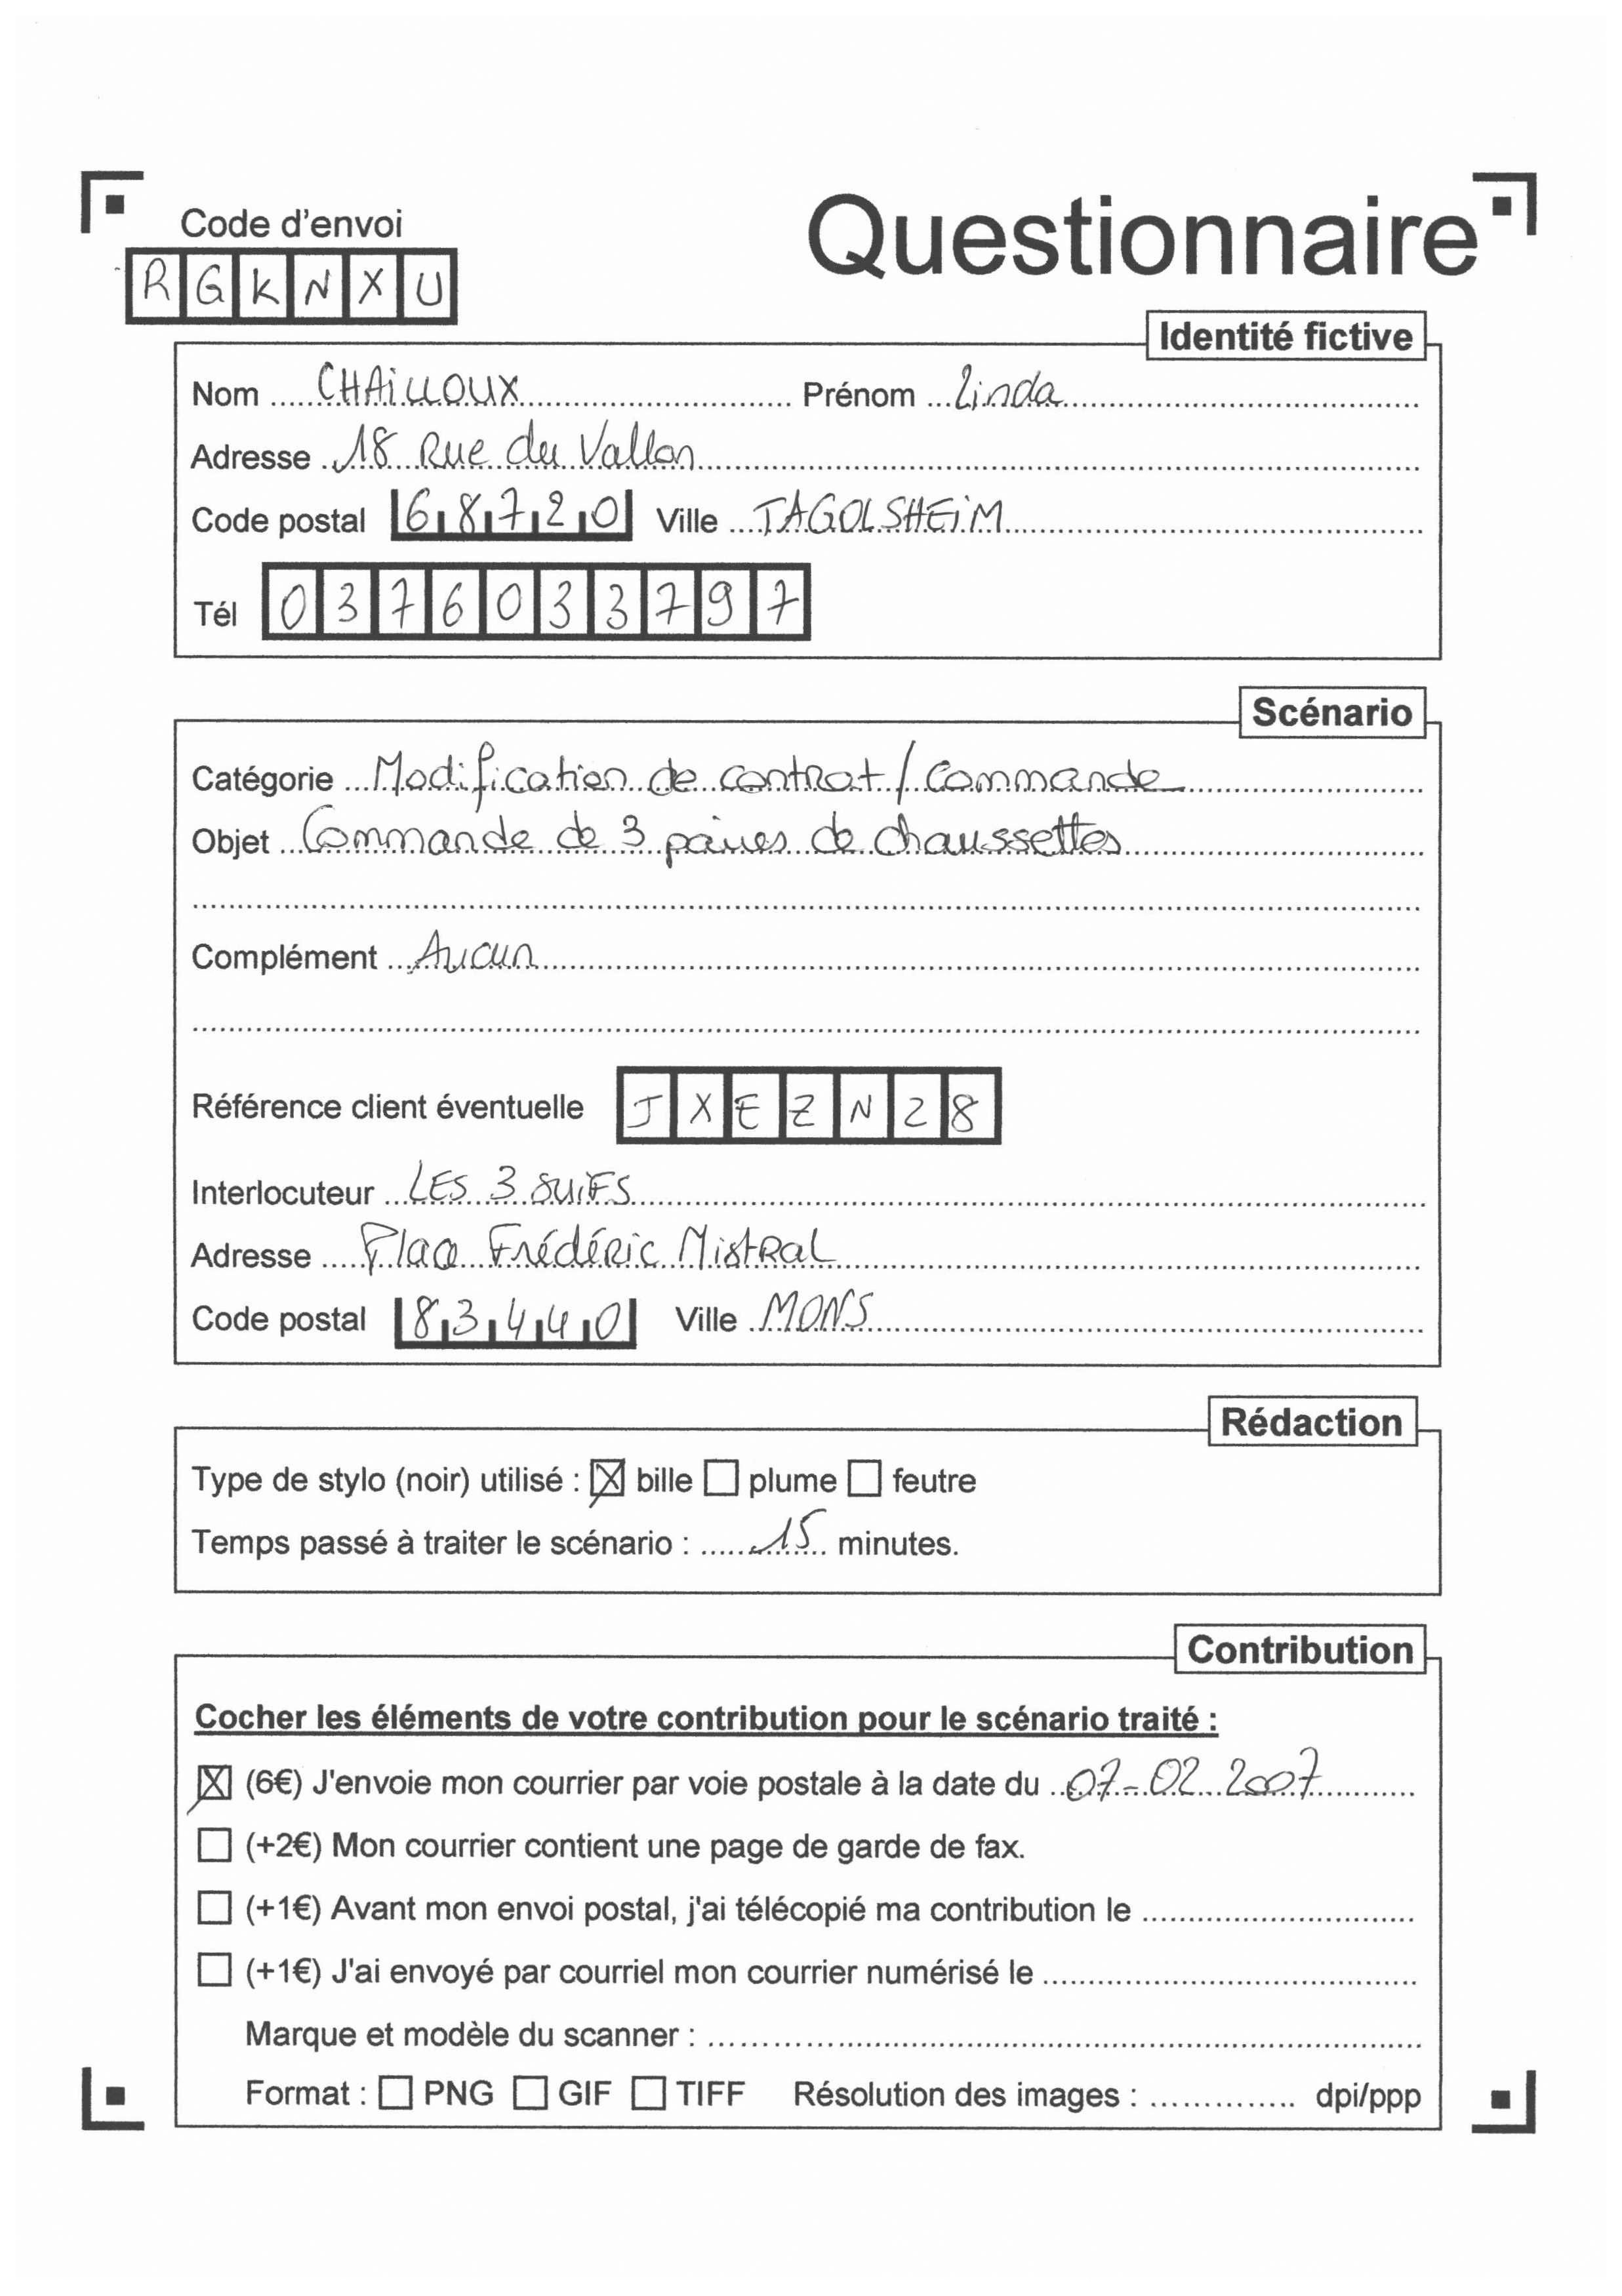 Code d'envoi
Questionnaire
RGKNXU
Identité fictive
Nom CHAiLLOUX Prénom Linda
Adresse 18 Rue du Vallon
Code postal 68720 Ville TAGOLSHEiM
Tél 0376033797
Scénario
Catégorie Modification de contrat / Commande
Objet Commande de 3 paires de chaussettes
Complément Aucun
Référence client éventuelle JXEZN28
Interlocuteur LES 3 SUiFS
Adresse Place Frédéric Mistral
Code postal 83440 Ville MONS
Rédaction
Type de stylo (noir) utilisé : ☒ bille ☐ plume ☐ feutre
Temps passé à traiter le scénario : 15 minutes.
Contribution
Cocher les éléments de votre contribution pour le scénario traité :
☒ (6€) J'envoie mon courrier par voie postale à la date du 07-02 2007
☐ (+2€) Mon courrier contient une page de garde de fax.
☐ (+1€) Avant mon envoi postal, j'ai télécopié ma contribution le
☐ (+1€) J'ai envoyé par courriel mon courrier numérisé le
Marque et modèle du scanner :
Format : ☐ PNG ☐ GIF ☐ TIFF Résolution des images : dpi/ppp